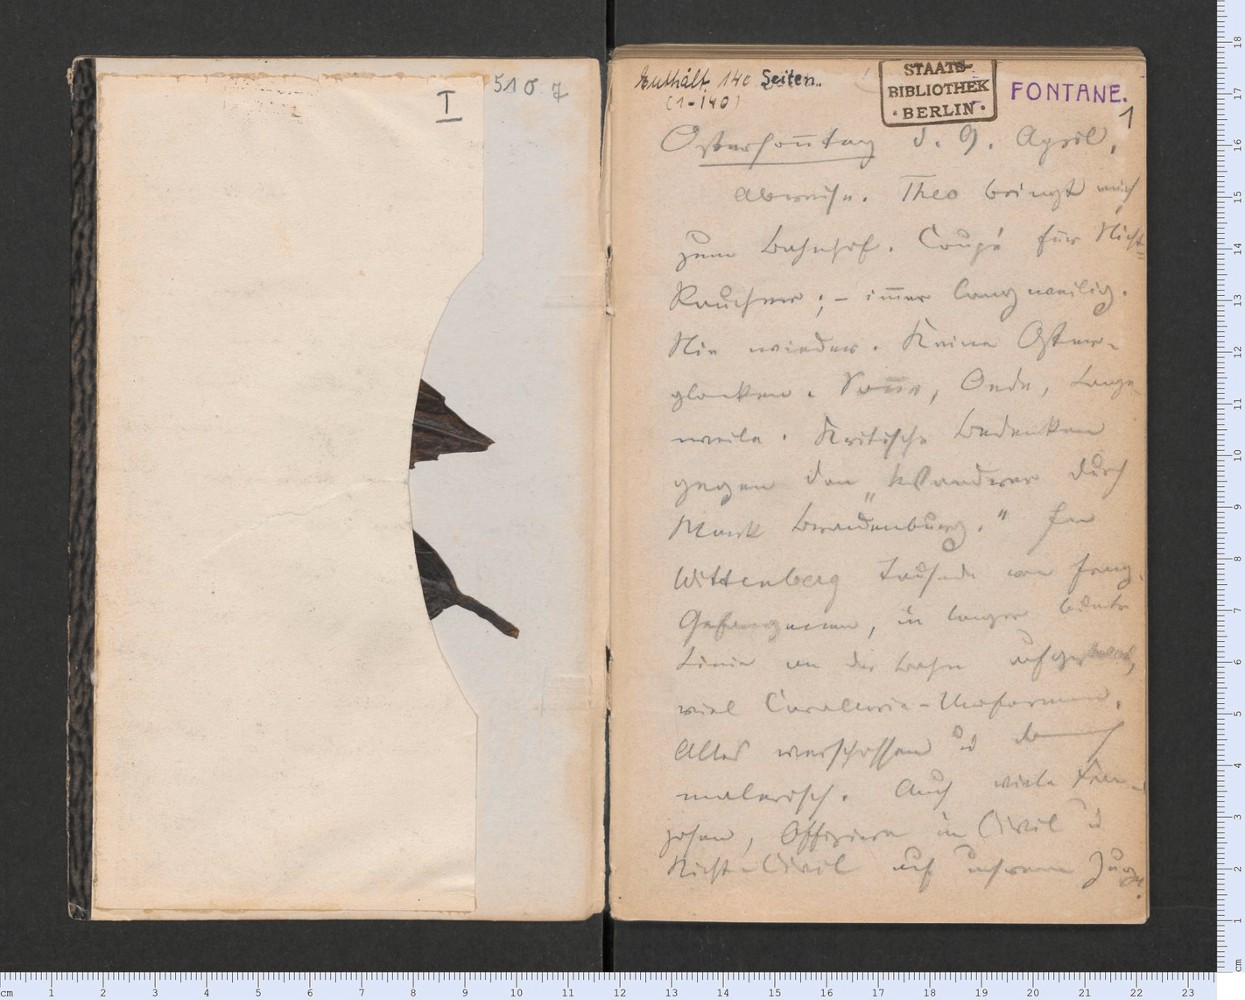 I
510 7
Enthält 140 Seiten.
(1-140)
STAATS-
BIBLIOTHEK
• BERLIN •
FONTANE.
1
Osterson̄tag d. 9. April.
Abreise. Theo bringt mich
zum Bahnhof. Coupé für Nicht-
Raucher; – im̄er langweilig.
Nie wieder. Keine Oster-
glocken. Son̄e, Oede, Lange-
weile. Kritische Bedenken
gegen den „Wanderer durch
Mark Brandenburg." In
Wittenberg Tausende von franz.
Gefangenen, in langer bunter
Linie an der Bahn aufge
viel Cavallerie-Uniformen.
Alles verschossen u dennoch
malerisch. Auch viele Fran-
zosen, Offiziere in Civil u
Nicht-Civil auf unsrem Zuge.